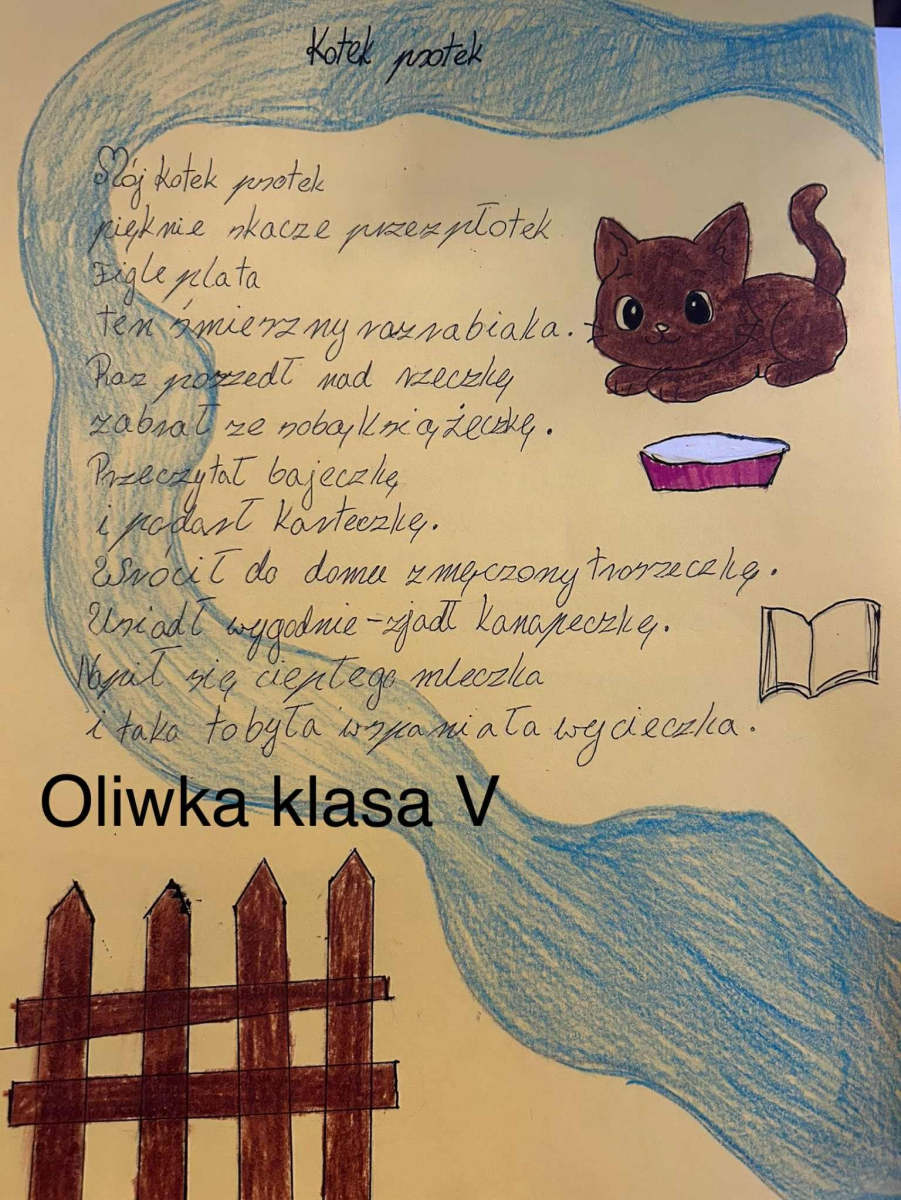 Kotek psotek
Mój kotek psotek
pięknie skacze przez płotek
Figle plata
ten śmieszny rozrabiaka.
Raz poszedł nad rzeczkę
zabrał ze sobą książeczkę.
Przeczytał bajeczkę
i podarł karteczkę.
Wrócił do domu zmęczony troszeczkę.
Usiadł wygodnie - zjadł kanapeczkę.
Napił się ciepłego mleczka
i taka to była wspaniała wycieczka.
Oliwka klasa V